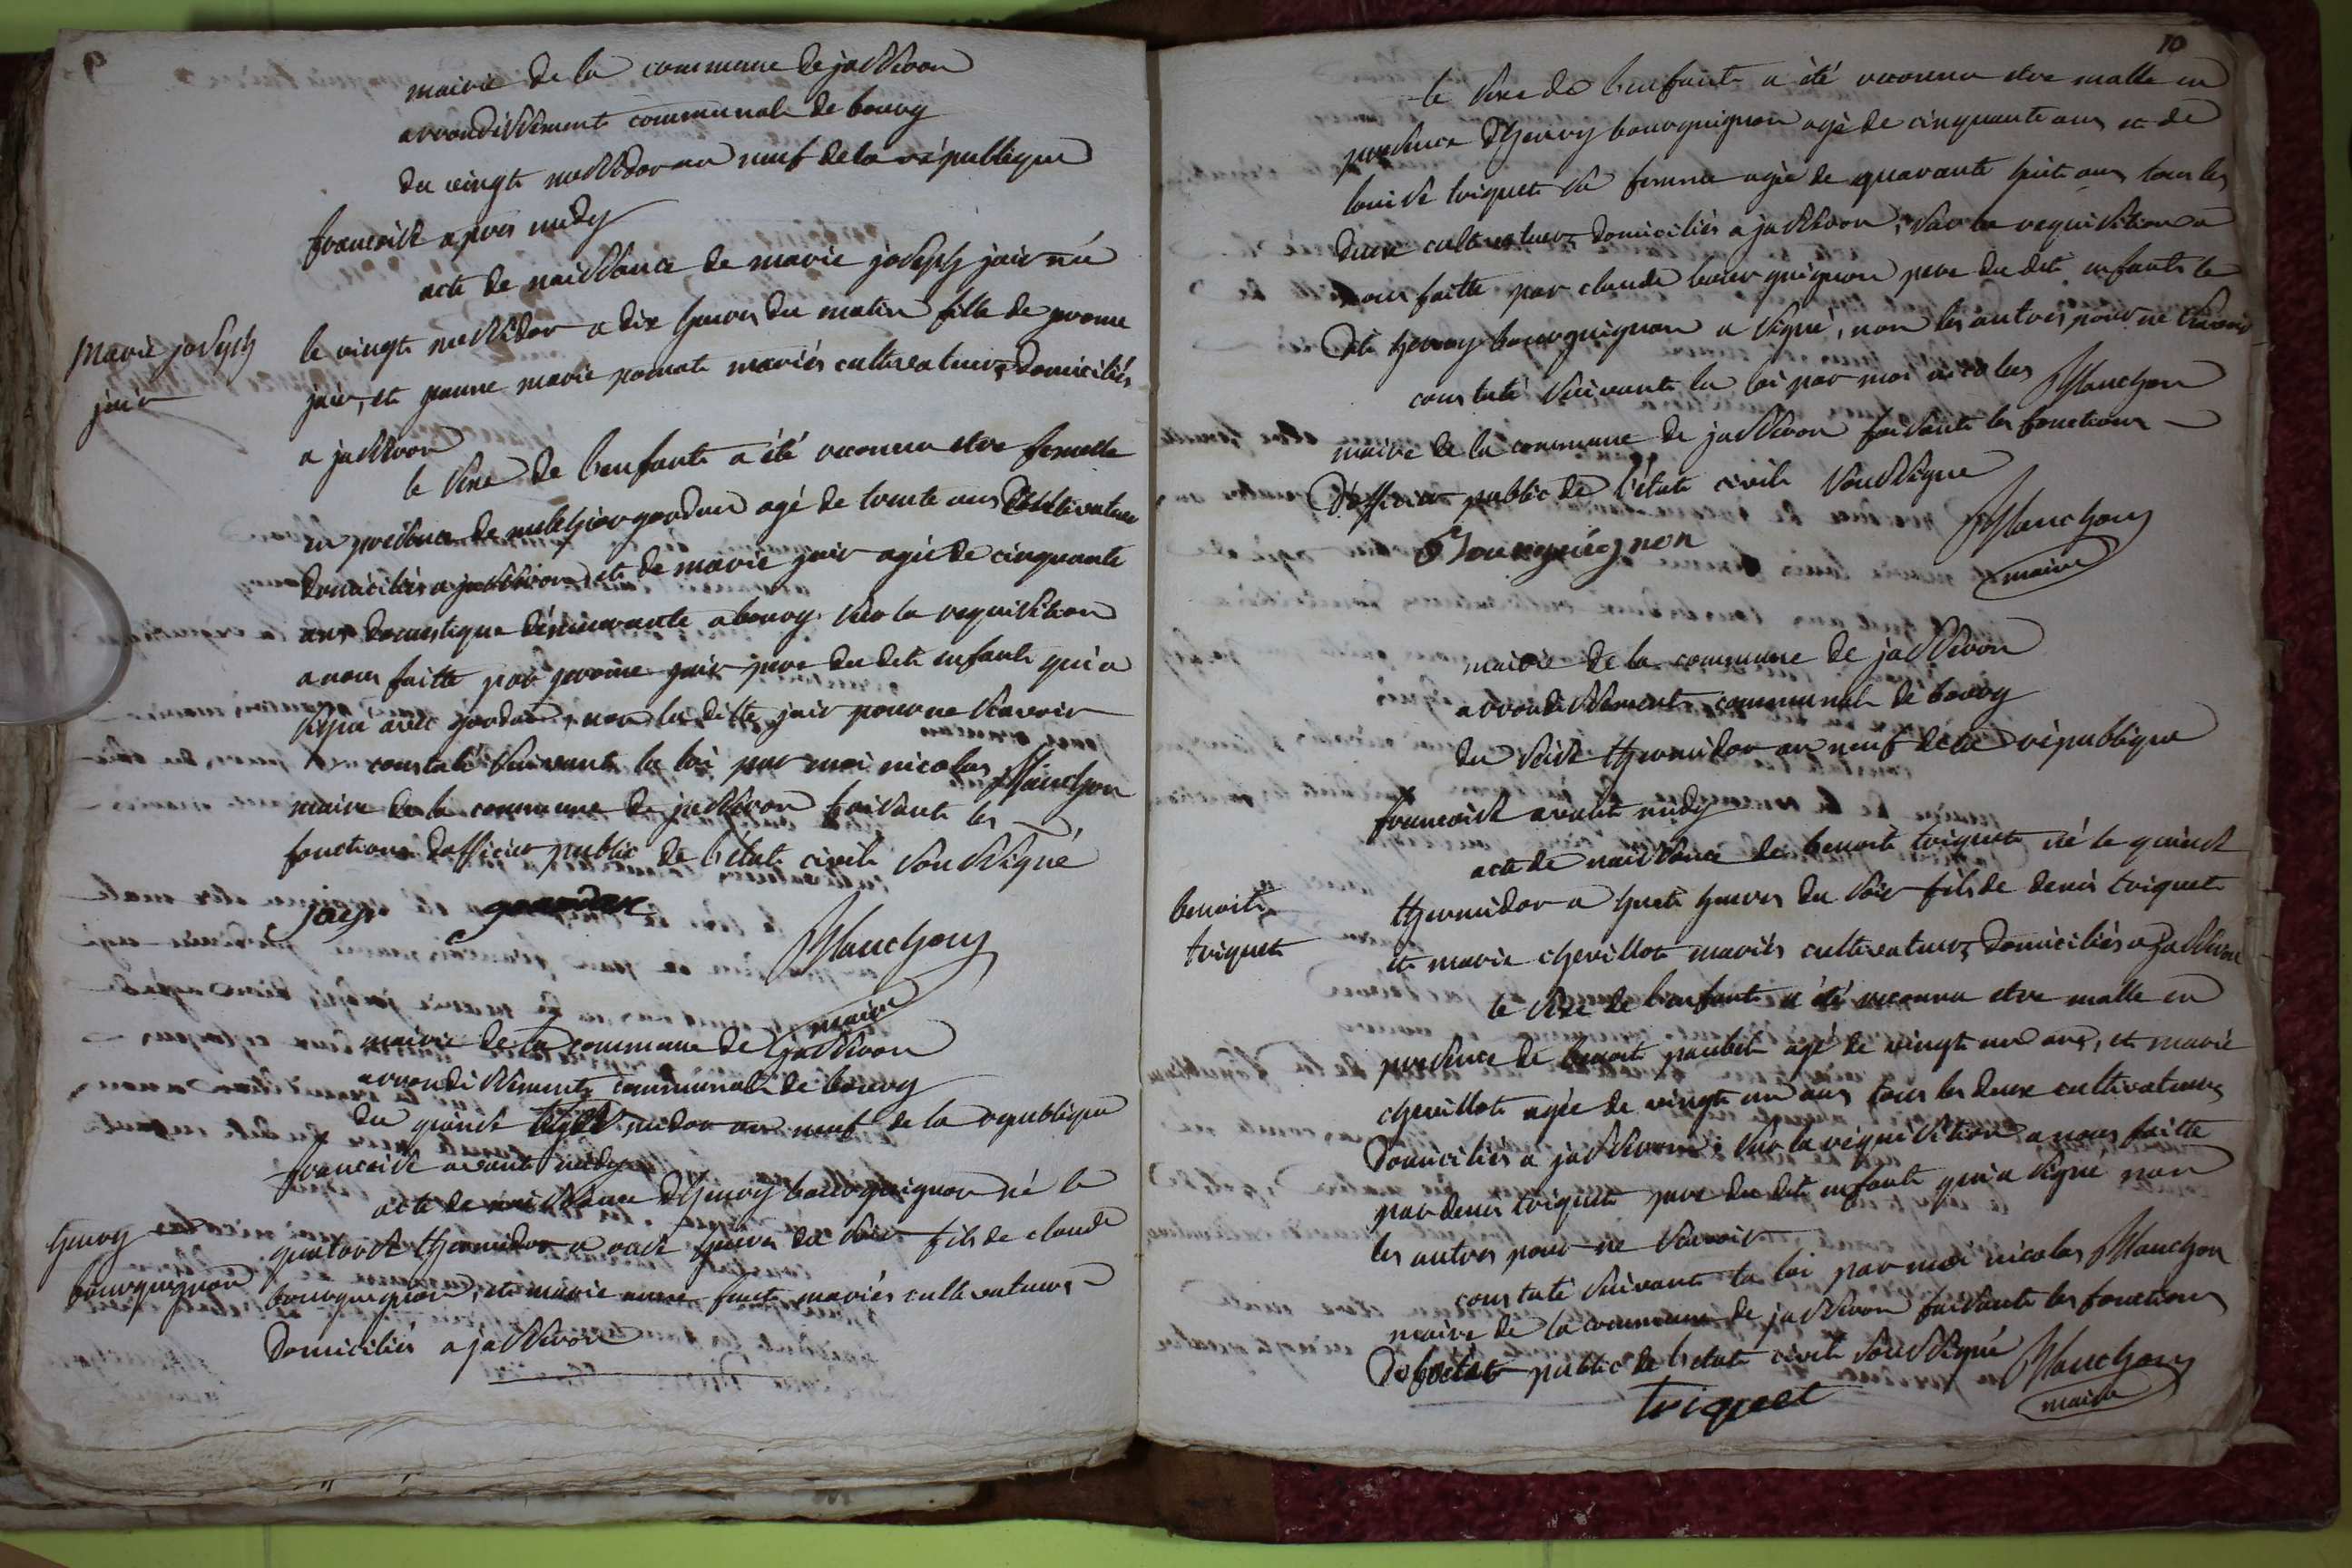 9
mairie de la commune de jasseron
arrondissement communal de bourg
du vingt messidor an neuf de la république
francoise apres midy
acte de naissance de marie joseph jair née
Marie joseph
jair
le vingt messidor a dix heures du matin fille de jerome
jair, et jeanne marie mariés cultivateurs domiciliés
a jasseron
le sexe de l'enfant a été reconnu etre femelle
en presence de melchior gordan agé de trente ans cultivateur
domiciliés a jasseron et de marie jair agée de cinquante
ans domestique demeurante a bourg sur la requisition
a nous faitte par jerome jair pere du dit enfant qui a
signé avec gordan, non la ditte jair pour ne scavoir
constaté suivant la loi par moi nicolas Manchon
maire de la commune de jasseron faisant les
fonctions d'officier public de l'état civil soussigné
jayr
Manchon
maire
mairie de la commune de jasseron
arrondissement communal de bourg
du quinse thermidor an neuf de la republique
francoise avant midy
acte de naissance d'henry bourguignon né le
henry
bourguignon
quatorse thermidor a onse heures du soir fils de claude
bourguignon, et marie anne mariés cultivateurs
domiciliés a jasseron
10
le sexe de l'enfant a été reconnu etre malle en
presence d'henry bourguignon agé de cinquante ans et de
louise triquet sa femme agée de quarante huit ans tous les
deux cultivateurs domiciliés a jasseron, sur la requisition a
nous faitte par claude bourguignon pere du dit enfant le
dit henry bourguignon a signé, non les autres pour ne scavoir
constaté suivant la loi par moi nicolas Manchon
maire de la commune de jasseron faisant les fonctions
d'officier public de l'état civil soussigne
Bourguignon
Manchon
maire
mairie de la commune de jasseron
arrondissement communal de bourg
du seise thermidor an neuf de la république
francoise avant midy
acte de naissance de benoit triquet né le quinse
benoit
triquet
thermidor a huit heures du soir fils de denis triquet
et marie chevillot mariés cultivateurs domiciliés a jasseron
le sexe de l'enfant a été reconnu etre malle en
presence de benoit agé de vingt un ans, et marie
chevillot agée de vingt un ans tous les deux cultivateurs
domiciliés a jasseron sur la réquisition a nous faitte
par denis triquet pere du dit enfant qui a signe non
les autres pour ne scavoir
constaté suivant la loi par moi nicolas Manchon
maire de la commune de jasseron faisant les fonctions
public de l'etat civil soussigné
Triquet
Manchon
maire